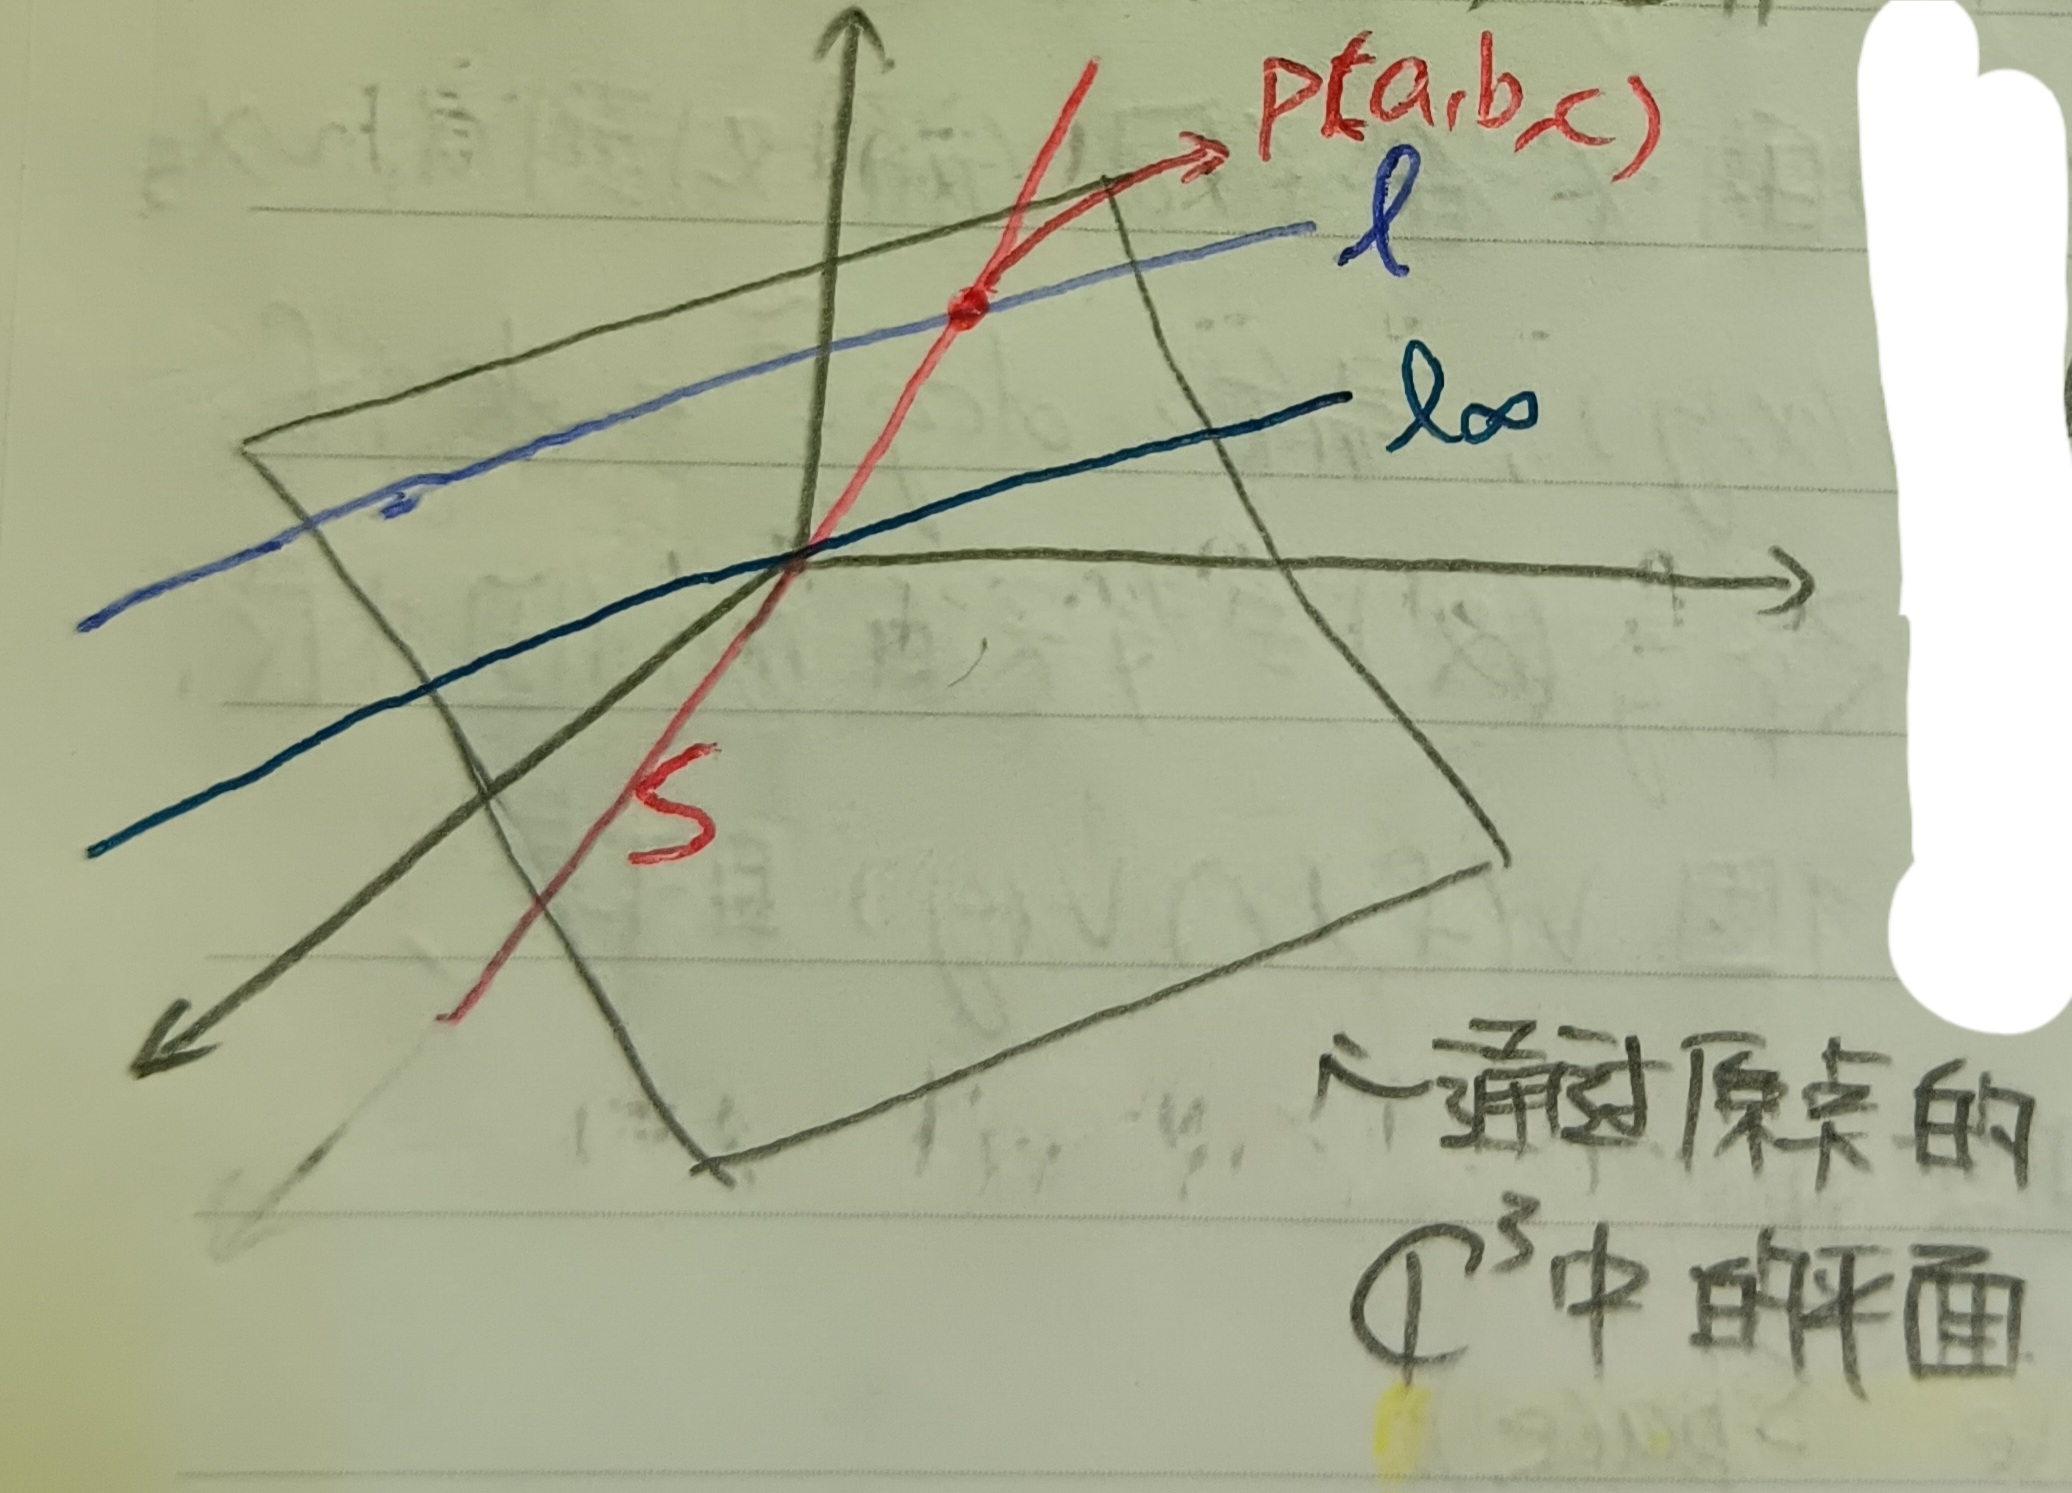 P(a,b,c)
l
l∞
S
通过原点的
ℂ³中的平面